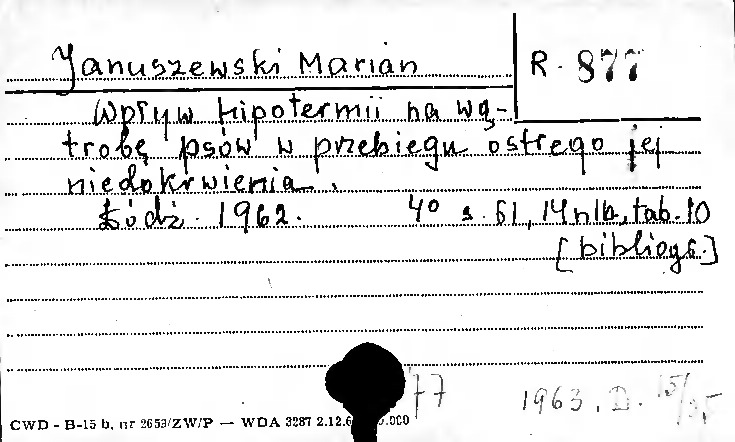 Januszewski Marian
R - 877
Wpływ hipotermii na wą-
trobę psów w przebiegu ostrego jej
niedokrwienia.
Łódź. 1962. 4° s. 61, 14 nlb, tab. 10
[bibliogr.]
77 1963. D. 15/
CWD - B-15 b, nr 2653/ZW/P — WDA 3287 2.12.6 .000